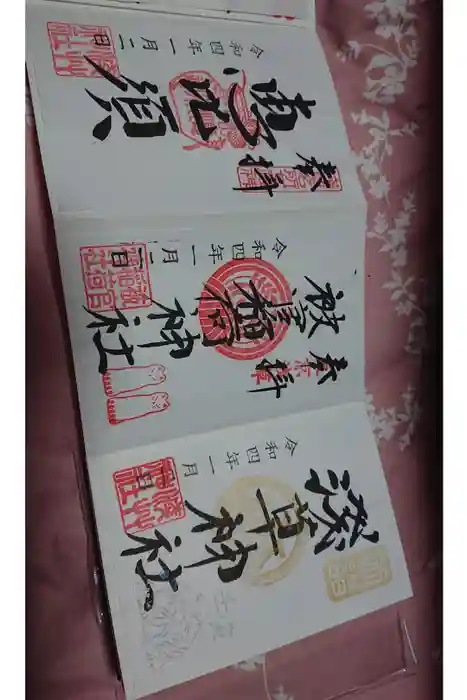 奉拝
恵比須
令和四年一月二日
奉拝
被官稲荷神社
令和四年一月二日
淺草神社
令和四年一月